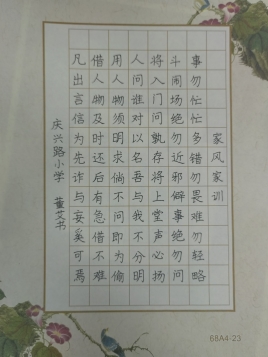 家风家训
事勿忙忙多错勿畏难勿轻略
斗闹场绝勿近邪僻事绝勿问
将入门问孰存将上堂声必扬
人问谁对以名吾与我不分明
用人物须明求倘不问即为偷
借人物及时还后有急借不难
凡出言信为先诈与妄奚可焉
庆兴路小学 董艾书
68A4-23